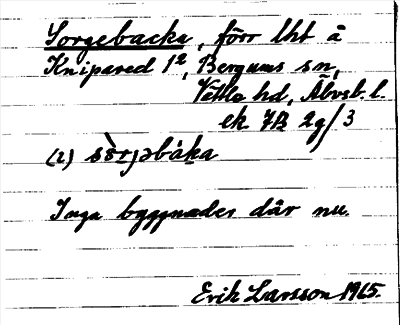 Sorgebacka, förr lht å
Knipared 1², Bergums sn,
Vättle hd, Älvsb. l.
ek 7B 2g/3
(i) sòrjəbáka
Inga byggnader där nu.
Erik Larsson 1965.